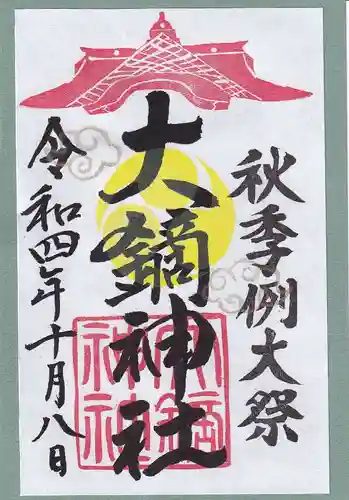 秋季例大祭
大鏑神社
令和四年十月八日